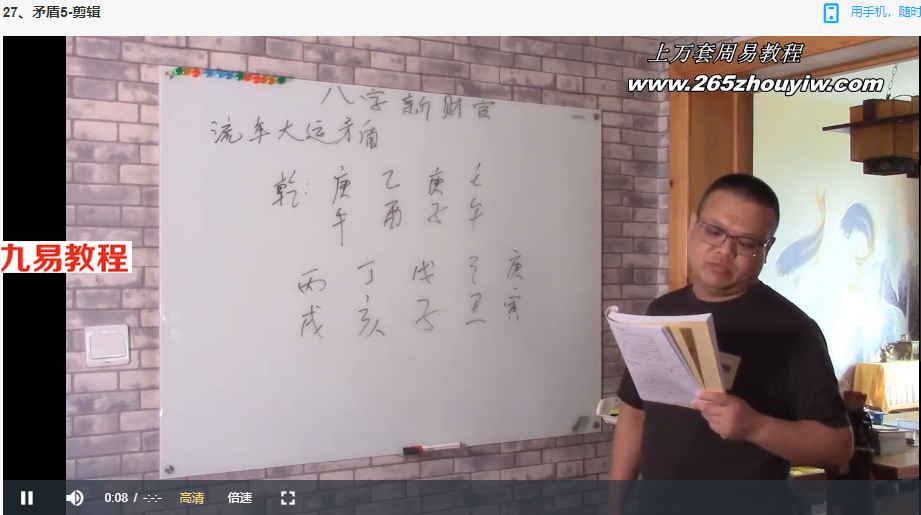 27、矛盾5-剪辑
用手机，随时
上万套周易教程
www.265zhouyiw.com
八字新财官
流年大运矛盾
乾：庚 乙 庚 壬
午 酉 子 午
九易教程
丙 丁 戊 己 庚
戌 亥 子 丑 寅
0:08 / -:-:-
高清
倍速